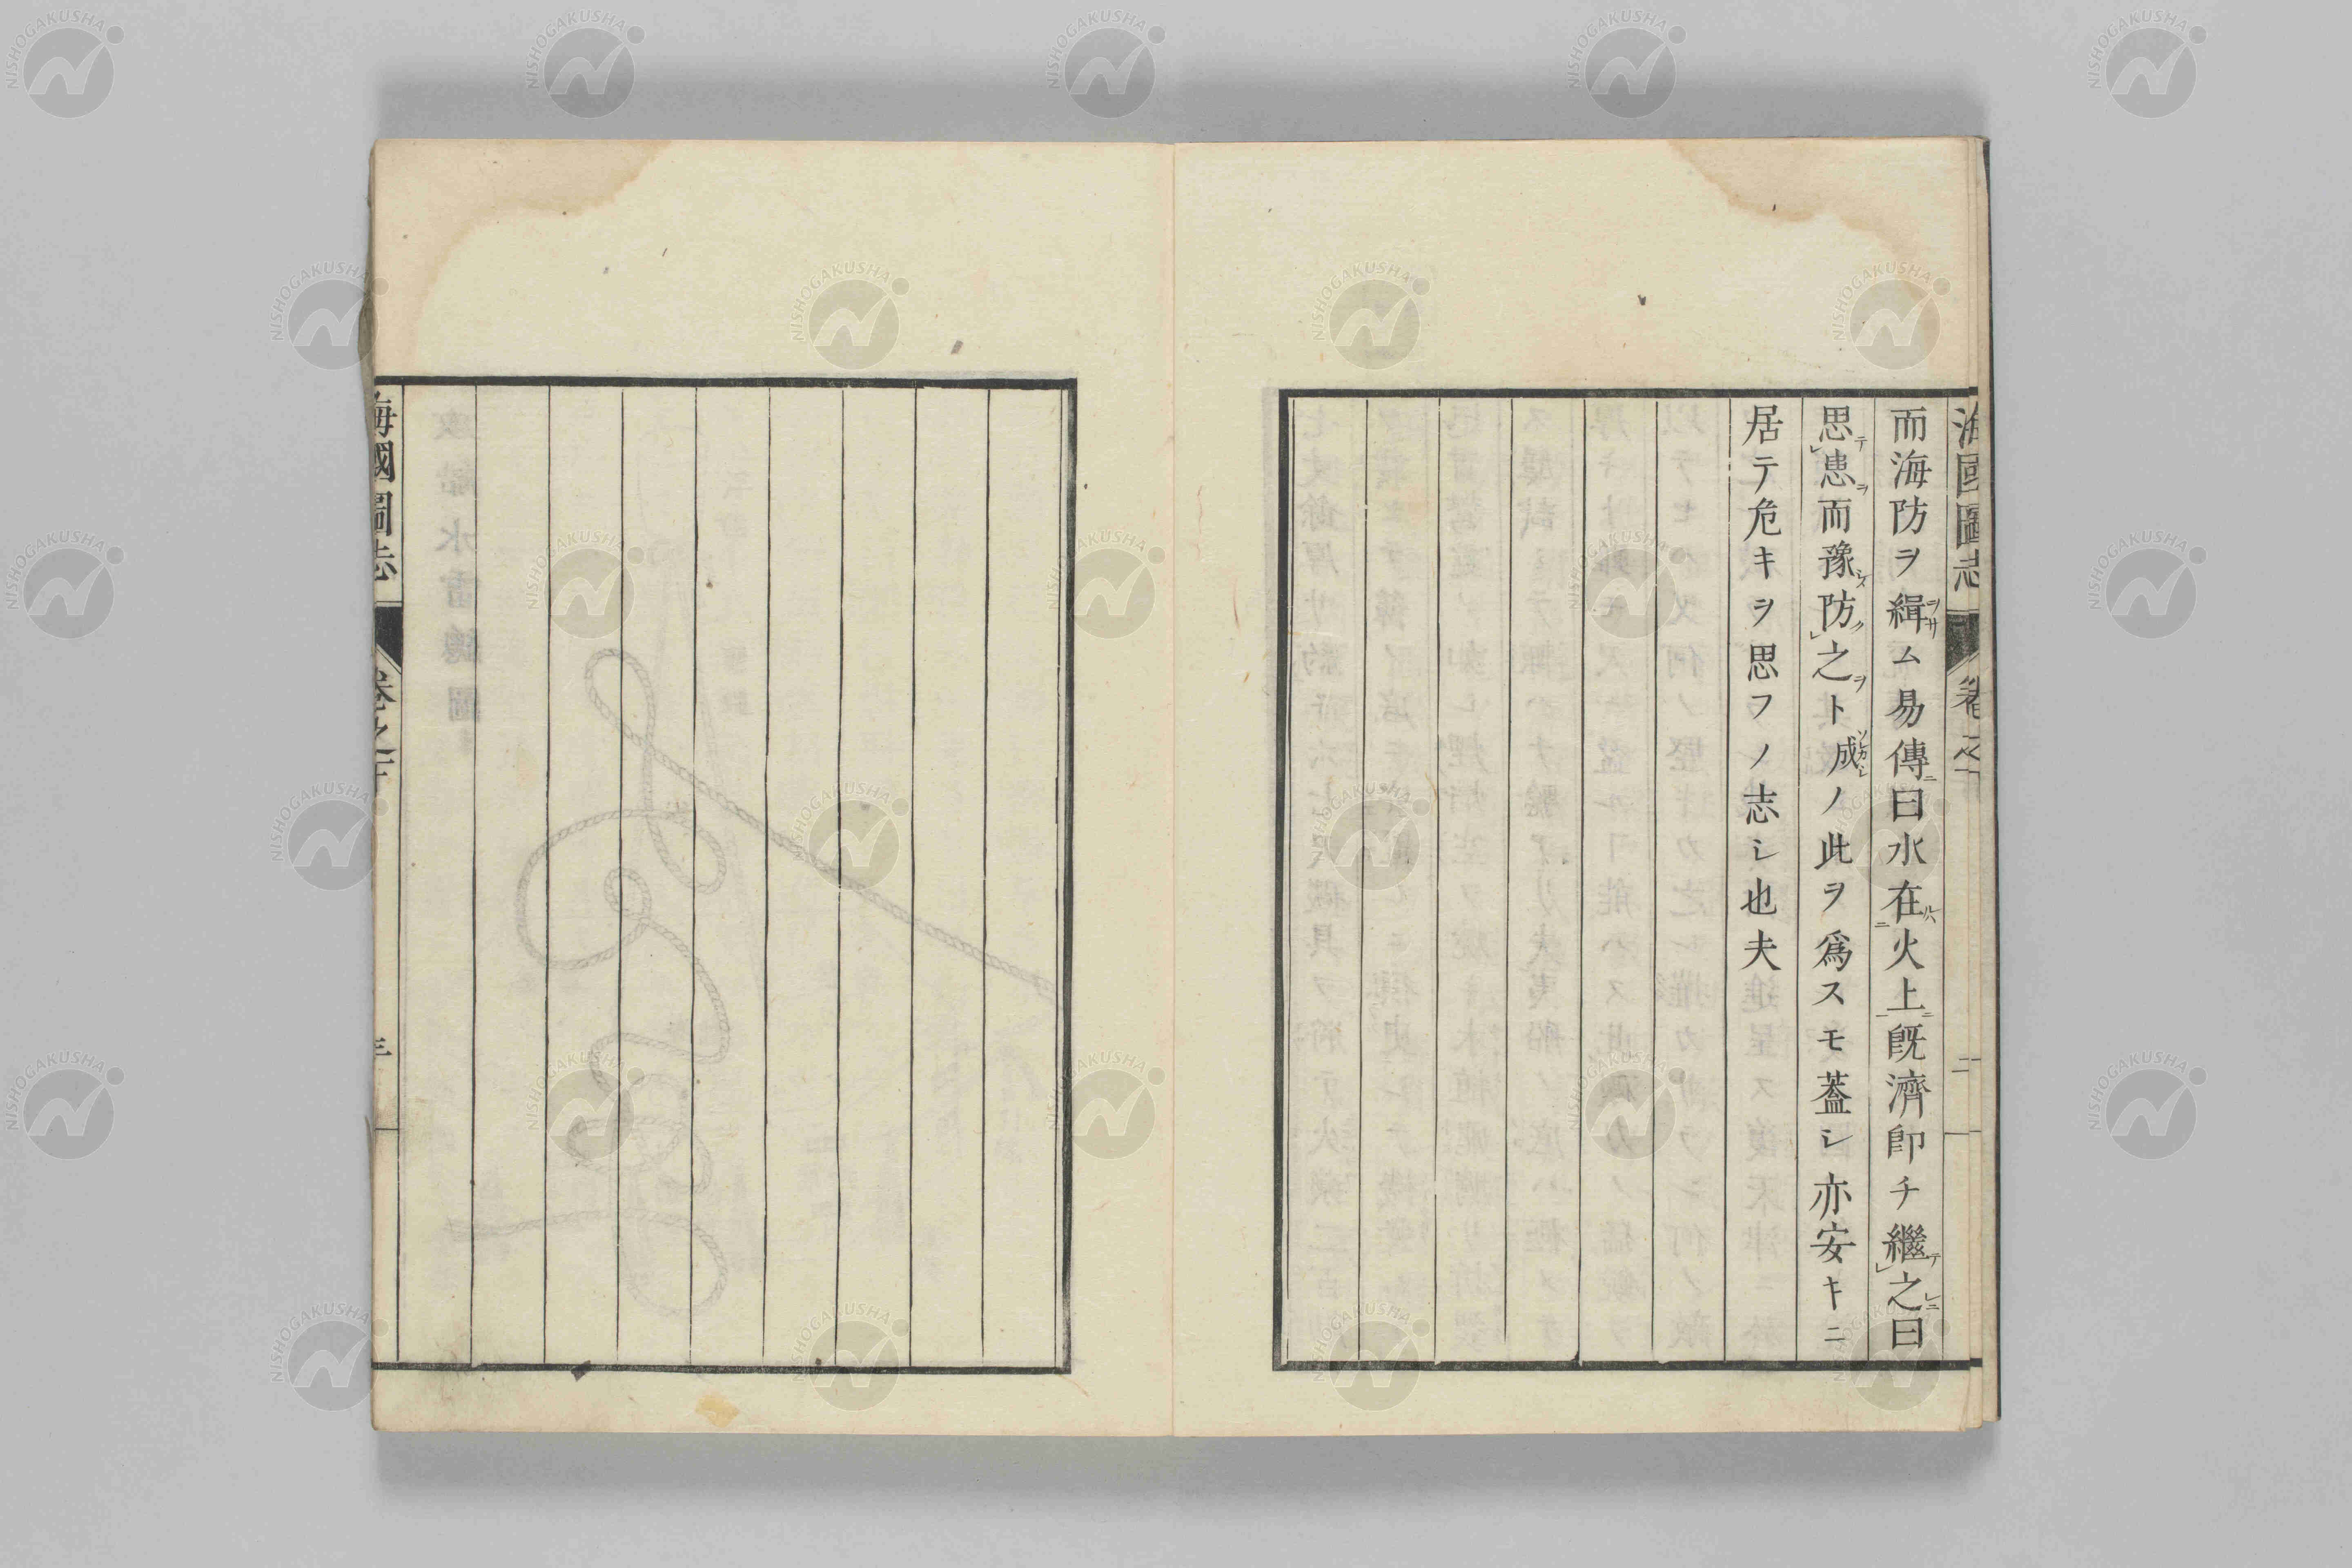 海國圖志 卷之 二
而海防ヲ緝ム易傳ニ曰水在ルハ火上ニ既濟卽チ繼テ之レニ曰
思テ患ヲ而豫シメ防クノ之ヲト成ノ此ヲ爲スモ蓋シ亦安キニ
居テ危キヲ思フノ志シ也夫
海國圖志 卷之
NISHOGAKUSHA